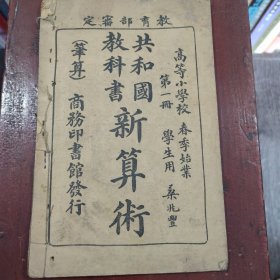 教育部審定
高等小學校 春季始業
第一冊 學生用
桑兆豐
共和國
教科書
新算術
（筆算）
商務印書館發行